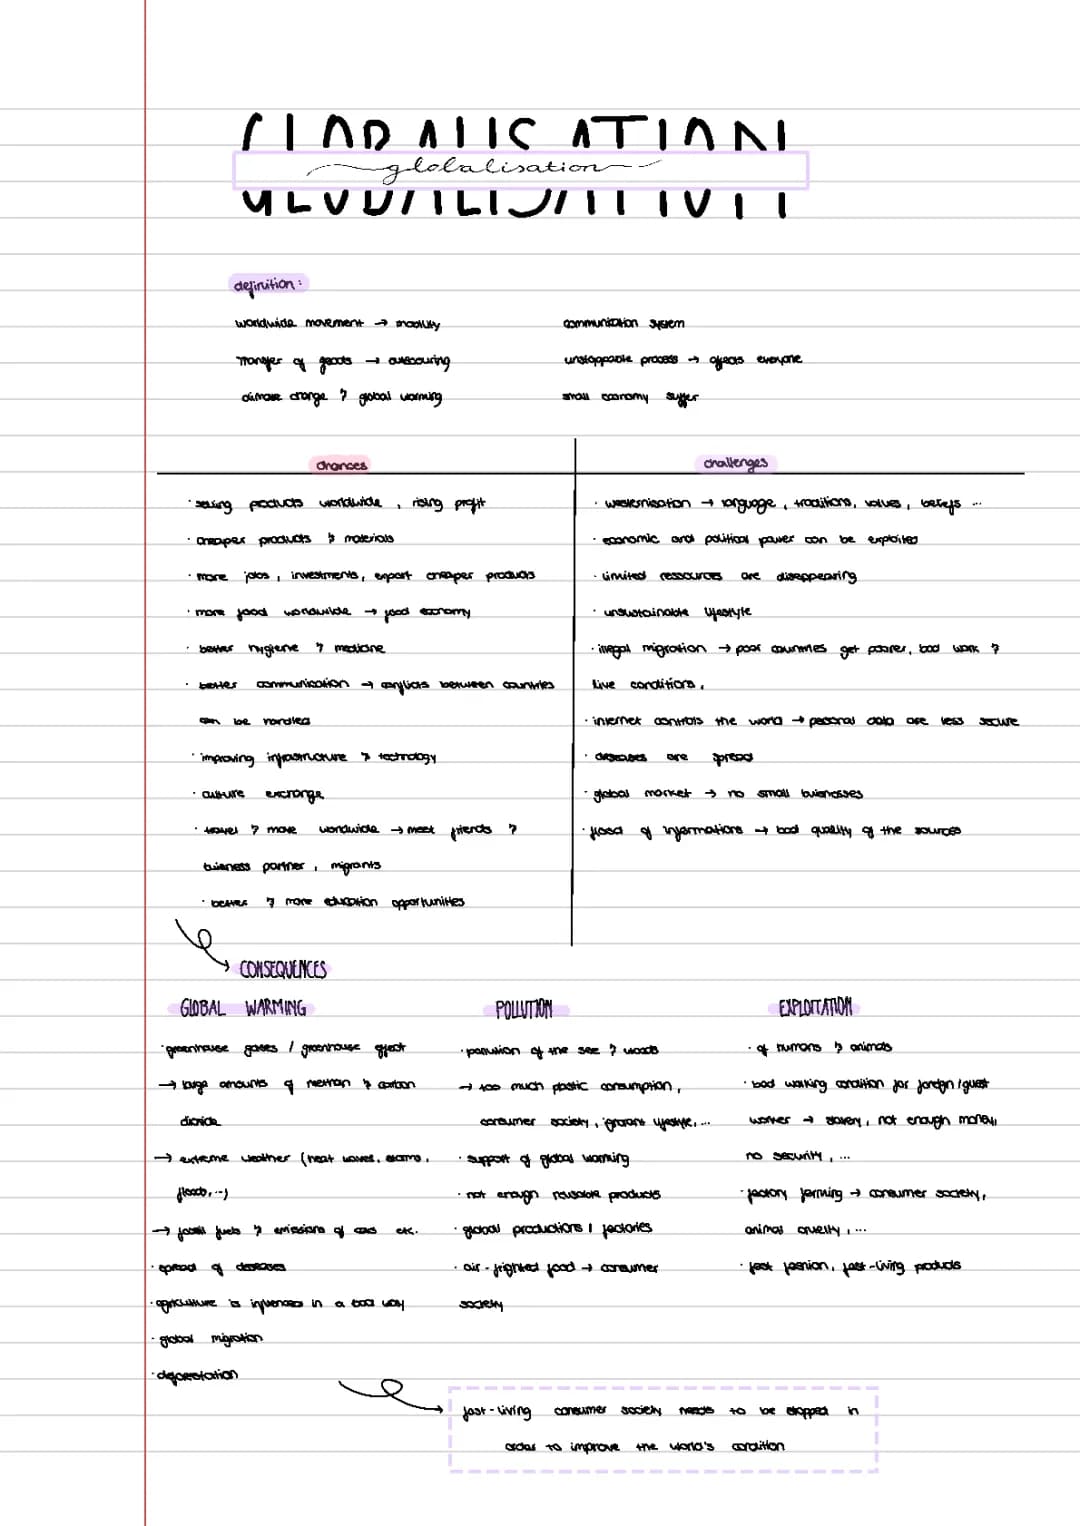 GLOBALISATION
globalisation
definition:
worldwide movement → mobility
communication system
transfer of goods → outsourcing
unstoppable process → affects everyone
climate change & global warming
small economy suffer
chances
challenges
· selling products worldwide, rising profit
· cheaper products & materials
· more jobs, investments, export cheaper products
· more food worldwide → food economy
· better hygiene & medicine
· better communication → conflicts between countries
can be handled
· improving infrastructure & technology
· culture exchange
· travel & move worldwide → meet friends &
buisness partner, migrants
· better & more education opportunities
· westernisation → language, traditions, values, beliefs ...
· economic and political power can be exploited
· limited ressources are disappearing
· unsustainable lifestyle
· illegal migration → poor countries get poorer, bad work &
live conditions,
· internet controls the world → personal data are less secure
· diseases are spread
· global market → no small buisnesses
· flood of informations → bad quality of the sources
→ CONSEQUENCES
GLOBAL WARMING
· greenhouse gases / greenhouse effect
→ large amounts of methan & carbon
dioxide
→ extreme weather (heat waves, storms,
floods, ...)
→ fossil fuels & emissions of cars etc.
· spread of diseases
· agriculture is influenced in a bad way
· global migration
· deforestation
POLLUTION
· pollution of the sea & woods
→ too much plastic consumption,
consumer society, ignorant lifestyle, ...
· support of global warming
· not enough reusable products
· global productions / factories
· air-frighted food → consumer
society
EXPLOITATION
· of humans & animals
· bad working condition for foreign/guest
worker → slavery, not enough money,
no security, ...
· factory farming → consumer society,
animal cruelty, ...
· fast fashion, fast-living products
→ fast-living consumer society needs to be stopped in
order to improve the world's condition